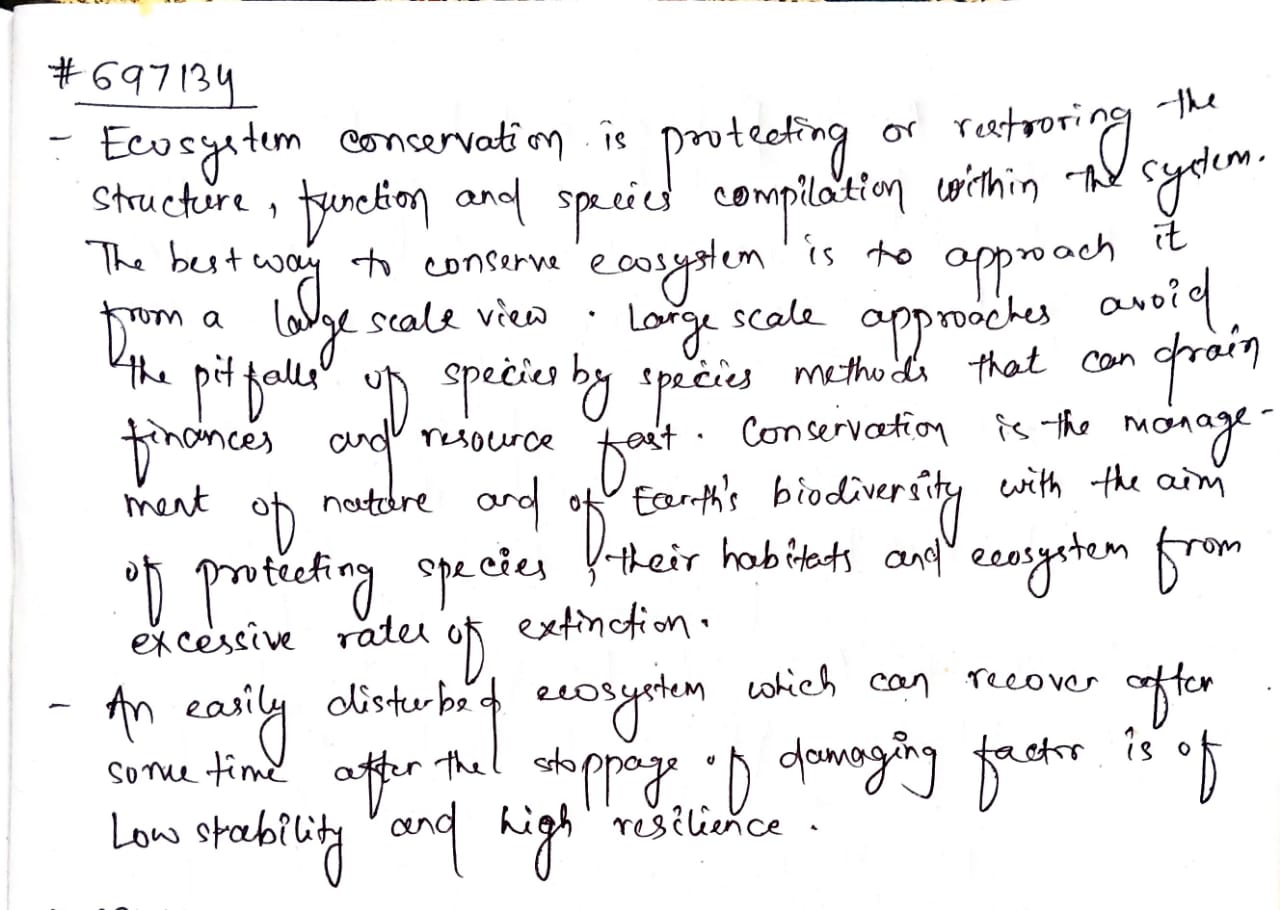 #697134
- Ecosystem conservation is protecting or restroring the
structure, function and species compilation within the system.
The best way to conserve ecosystem is to approach it
from a large scale view. Large scale approaches avoid
the pitfalls of species by species methods that can drain
finances and resource fast. Conservation is the manage-
ment of nature and of Earth's biodiversity with the aim
of protecting species, their habitats and ecosystem from
excessive rates of extinction.
- An easily disturbed ecosystem which can recover after
some time after the stoppage of damaging factor is of
Low stability and high resilience.